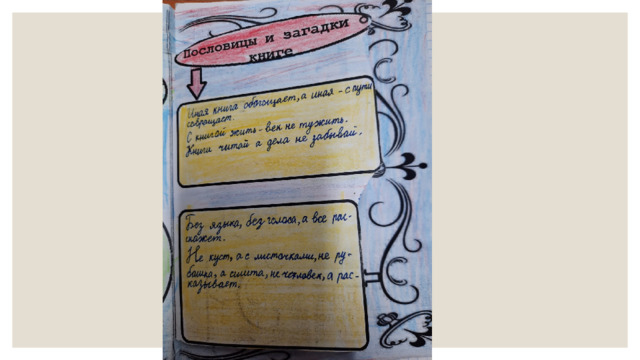 Пословицы и загадки
книге
Иная книга обогощает, а иная - с пути
совращает.
С книгой жить - век не тужить.
Книги читай а дела не забывай.
Без языка, без голоса, а все рас-
скажет.
Не куст, а с листочками, не ру-
башка, а сшита, не человек, а рас-
казывает.